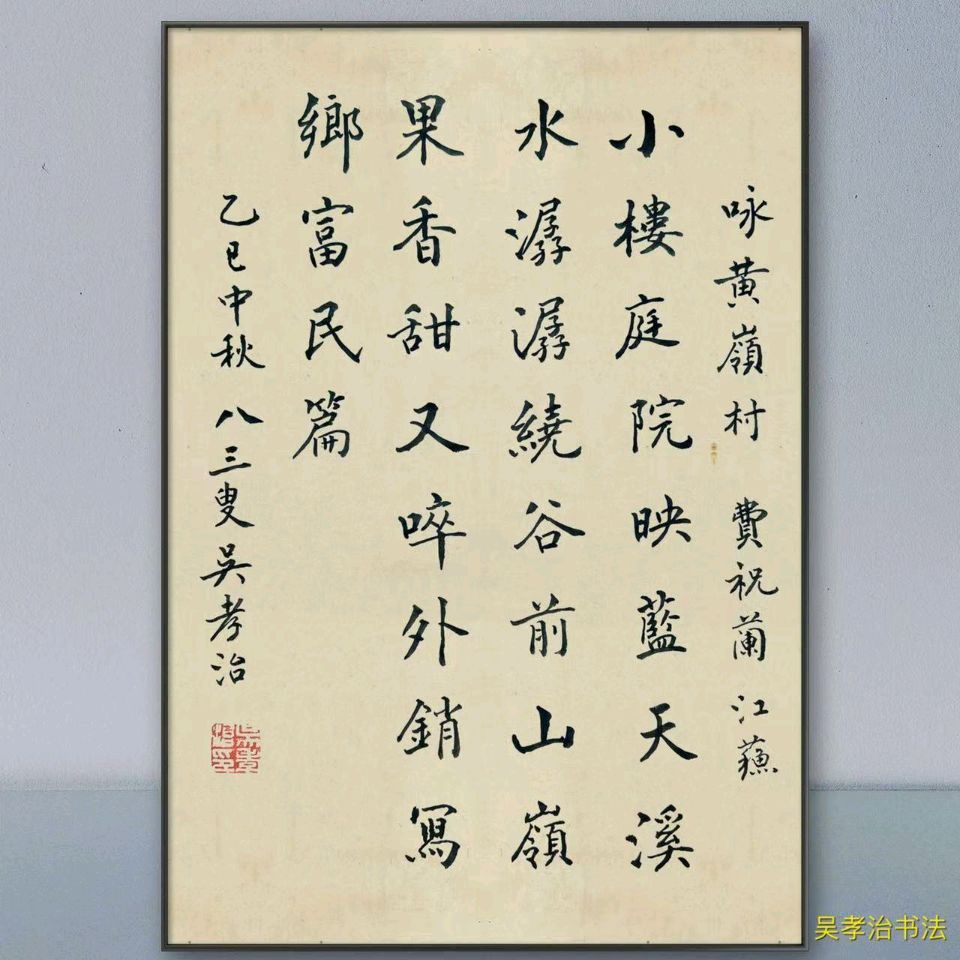 咏黄嶺村 費祝蘭 江蘇
小樓庭院映藍天溪
水潺潺繞谷前山嶺
果香甜又啐外銷寫
鄉富民篇
乙巳中秋 八三叟吴孝治
吴孝治书法